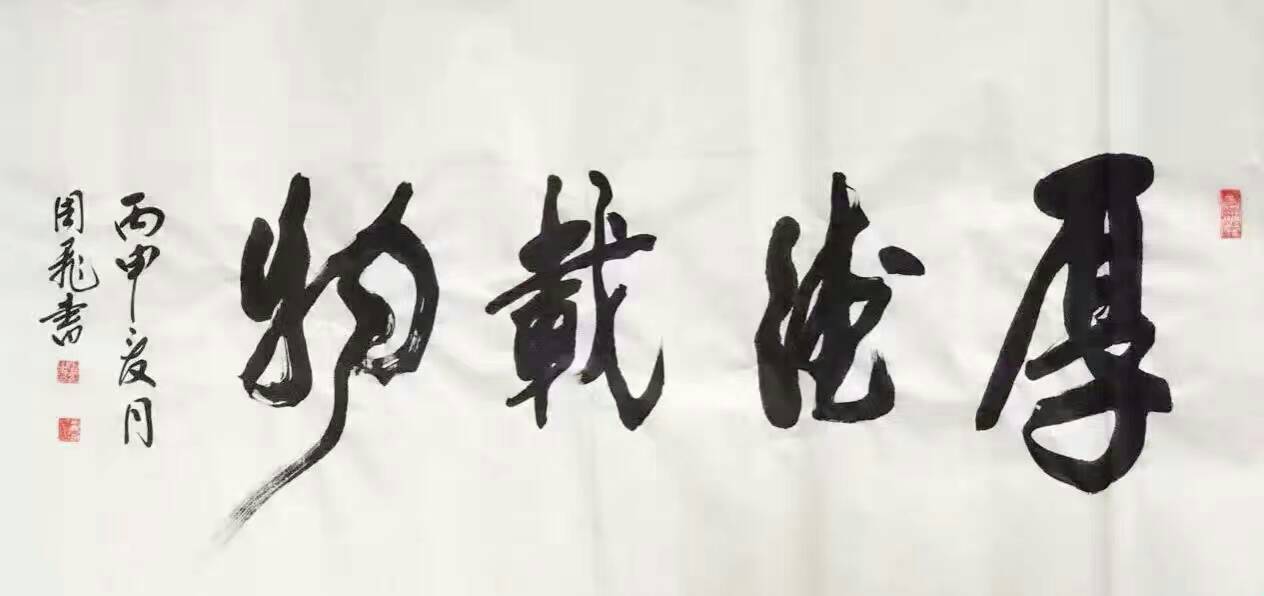 厚德載物
丙申夏月
周飛書